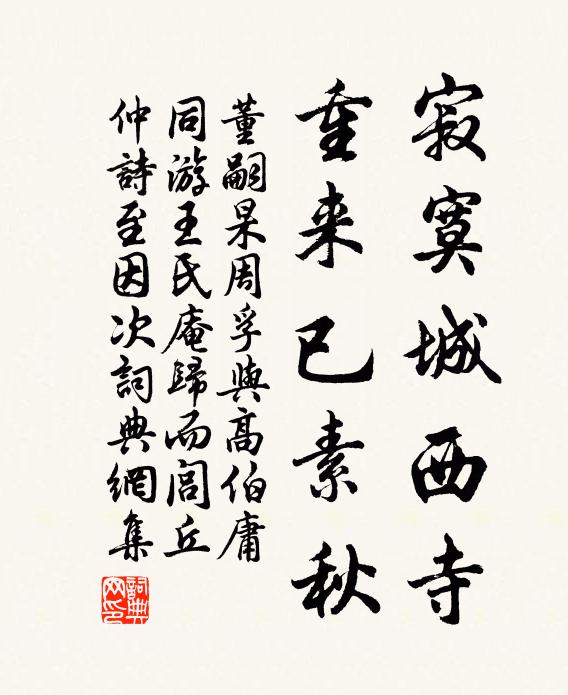 寂寞城西寺
重来已素秋
董嗣杲周孚與高伯庸
同游王氏庵歸而閭丘
仲詩至因次詞典網集